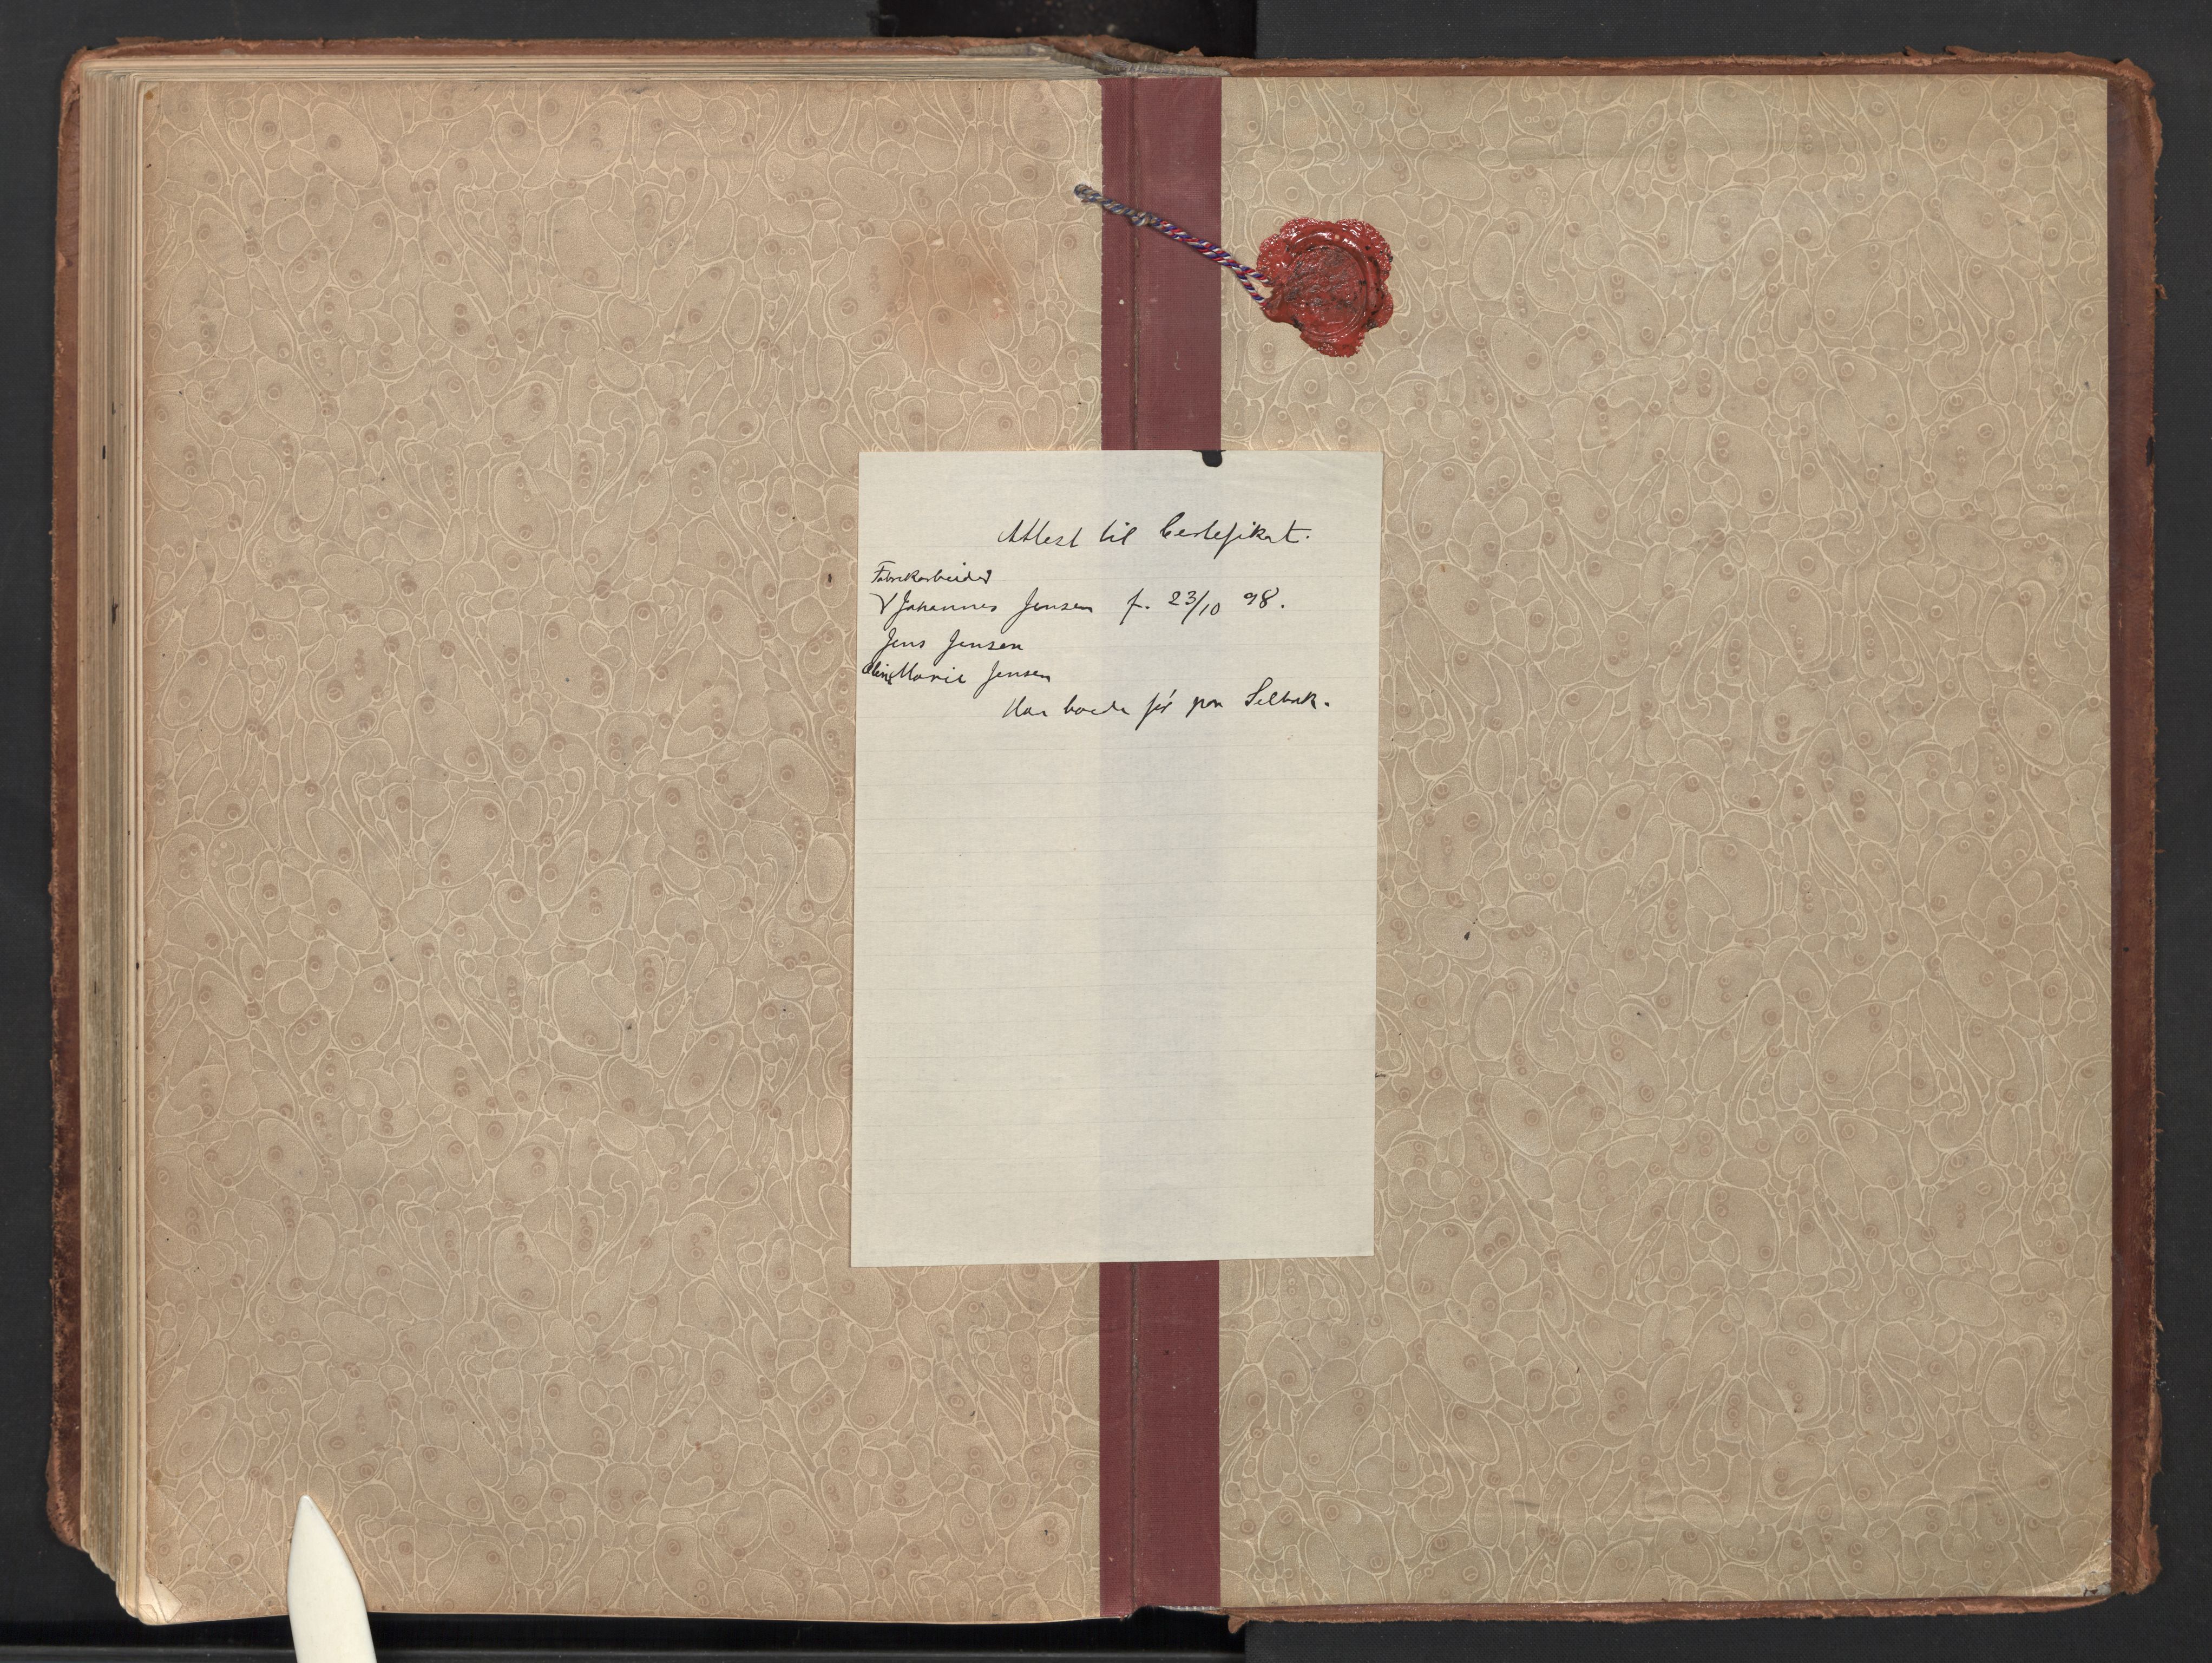 Attest til Certefikat.
Fabrikarbeider
Johannes Jensen f. 23/10 98.
Jens Jensen
Marie Jensen
Har boede før paa Selbak.